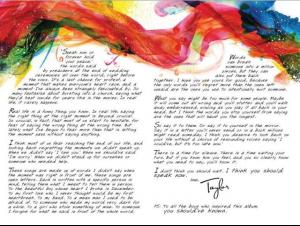 "Speak now or
forever hold
your peace,"
the words said
by preachers at the end of wedding
ceremonies all over the world, right before
the vows. It's a last chance for protest, a
moment that makes everyone's heart race, and a
moment I've always been strangely fascinated by. So
many fantasize about bursting into a church, saying what
they'd kept inside for years like in the movies. In real
life, it rarely happens.
Real life is a funny thing, you know. In real life, saying
the right thing at the right moment is beyond crucial.
So crucial, in fact, that most of us start to hesitate, for
fear of saying the wrong thing at the wrong time. But
lately what I've begun to fear more than that is letting
the moment pass without saying anything.
I think most of us fear reaching the end of our life, and
looking back regretting the moments we didn't speak up.
When we didn't say "I love you." When we should've said
"I'm sorry." When we didn't stand up for ourselves or
someone who needed help.
These songs are made up of words I didn't say when
the moment was right in front of me. These songs are
open letters. Each is written with a specific person in
mind, telling them what I meant to tell them in person.
To the beautiful boy whose heart I broke in December.
To my first love who I never thought would be my first
heartbreak. To my band. To a mean man I used to be
afraid of. To someone who made my world very dark for
a while. To a girl who stole something of mine. To someone
I forgive for what he said in front of the whole world.
Words
can break
someone into a million
pieces, but they can
also put them back
together. I hope you use yours for good, because
the only words you'll regret more than the ones left
unsaid are the ones you use to intentionally hurt someone.
What you say might be too much for some people. Maybe
it will come out all wrong and you'll stutter and you'll walk
away embarrassed, wincing as you play it all back in your
head. But I think the words you stop yourself from saying
are the ones that will haunt you the longest.
So say it to them. Or say it to yourself in the mirror.
Say it in a letter you'll never send or in a book millions
might read someday. I think you deserve to look back on
your life without a chorus of resounding voices saying "I
could've, but it's too late now."
There is a time for silence. There is a time waiting your
turn. But if you know how you feel, and you so clearly know
what you need to say, you'll know it.
I don't think you should wait. I think you should
speak now.
Taylor
PS: To all the boys who inspired this album,
you should've known.